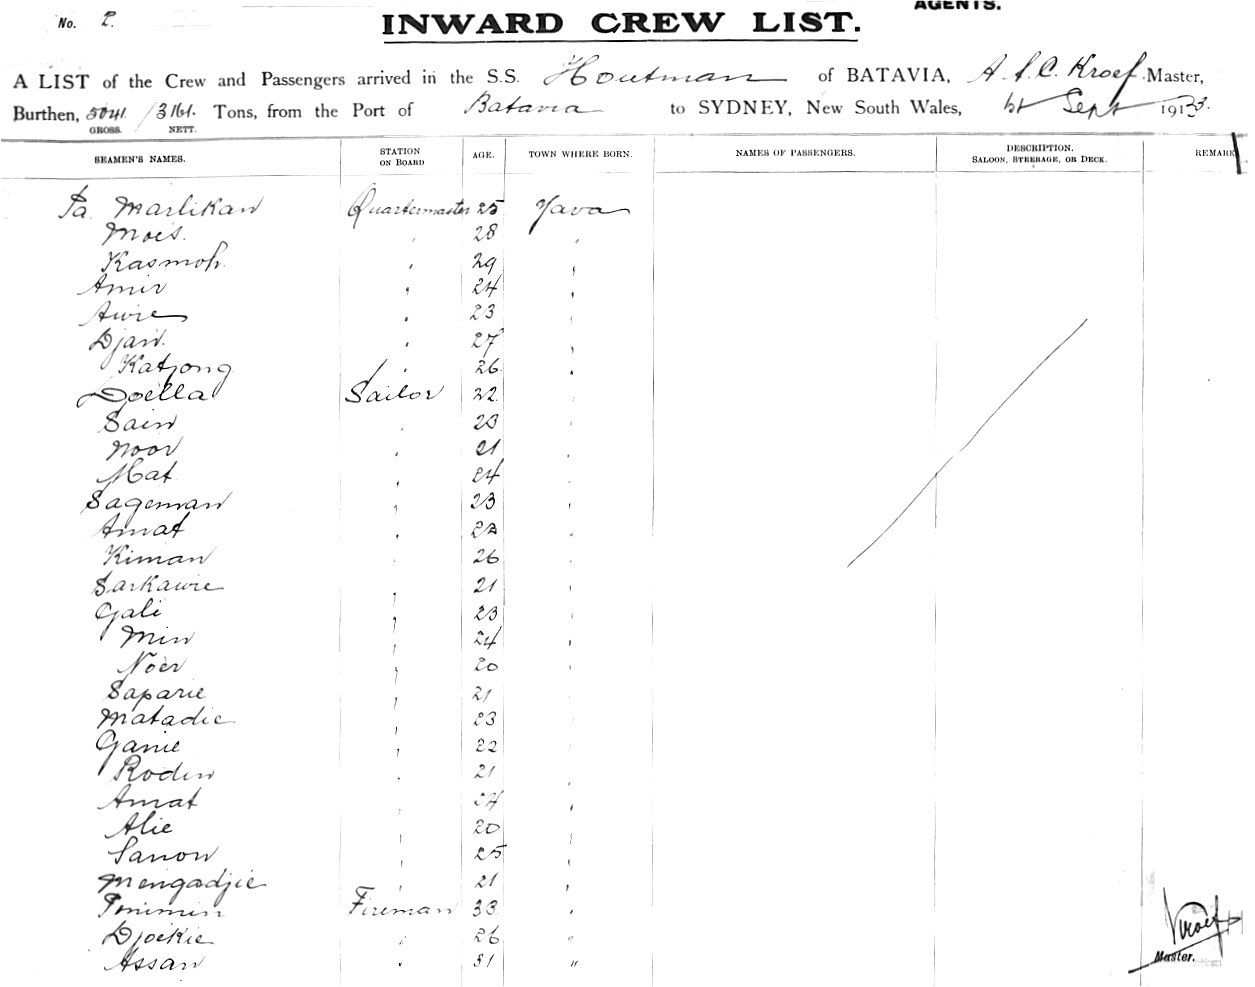 AGENTS.
No. 2.
INWARD CREW LIST.
A LIST of the Crew and Passengers arrived in the S.S. Houtman of BATAVIA, A. f. C. Kroef Master,
Burthen, 5041 / 3161. Tons, from the Port of Batavia to SYDNEY, New South Wales, 1st Sept 1913.
GROSS. NETT.
SEAMEN'S NAMES. STATION ON BOARD AGE. TOWN WHERE BORN. NAMES OF PASSENGERS. DESCRIPTION. SALOON, STEERAGE, OR DECK. REMARK
Pa. Marlikan Quartermaster 25 Java
Moeis. " 28 "
Kasmoh. " 29 "
Amir " 24 "
Awie " 23 "
Djan. " 27 "
Katjong " 26 "
Doella Sailor 22 "
Sain " 23 "
Noor " 21 "
Mat " 24 "
Sageman " 23 "
Amat " "
Kiman " 26 "
Sarkawie " 21 "
Gali " 23 "
Min " 24 "
Noer " 20 "
Saparie " 21 "
Matadie " 23 "
Ganie " 22 "
Rodin " 21 "
Amat " 24 "
Alie " 20 "
Sanon " 25 "
Mengadjie " 21 "
Ponimin Fireman 33 "
Djoekie " 26 "
Assan " 31 "
Kroef
Master.